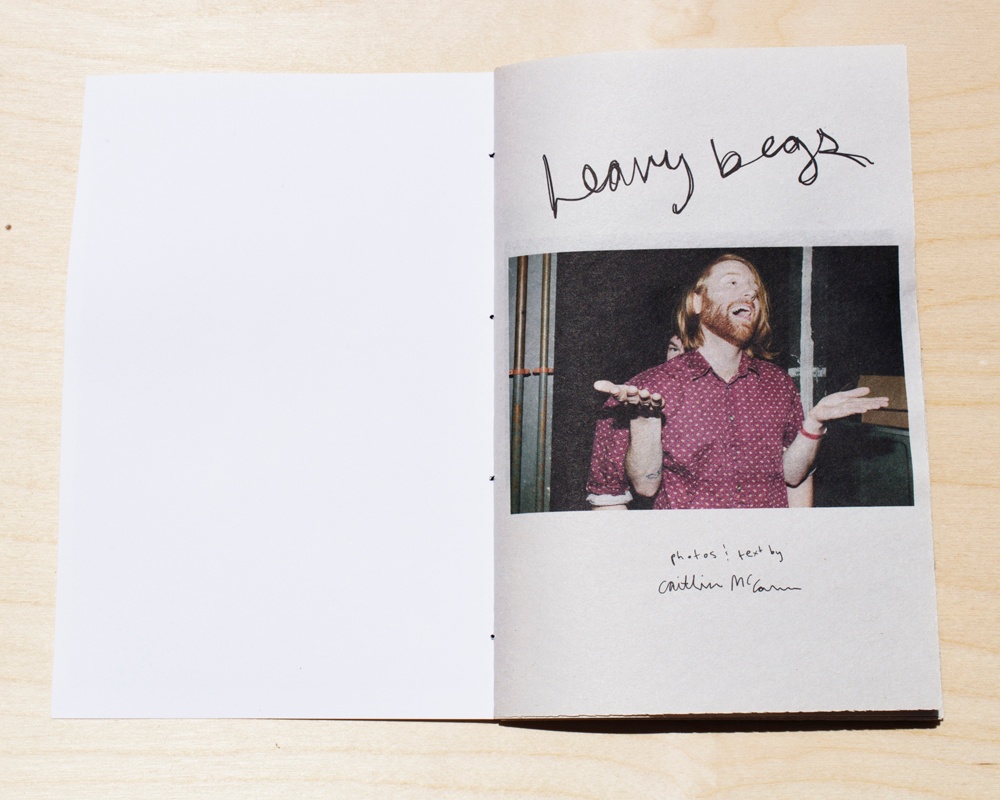 heavy begs
photos & text by
Caitlin McCann